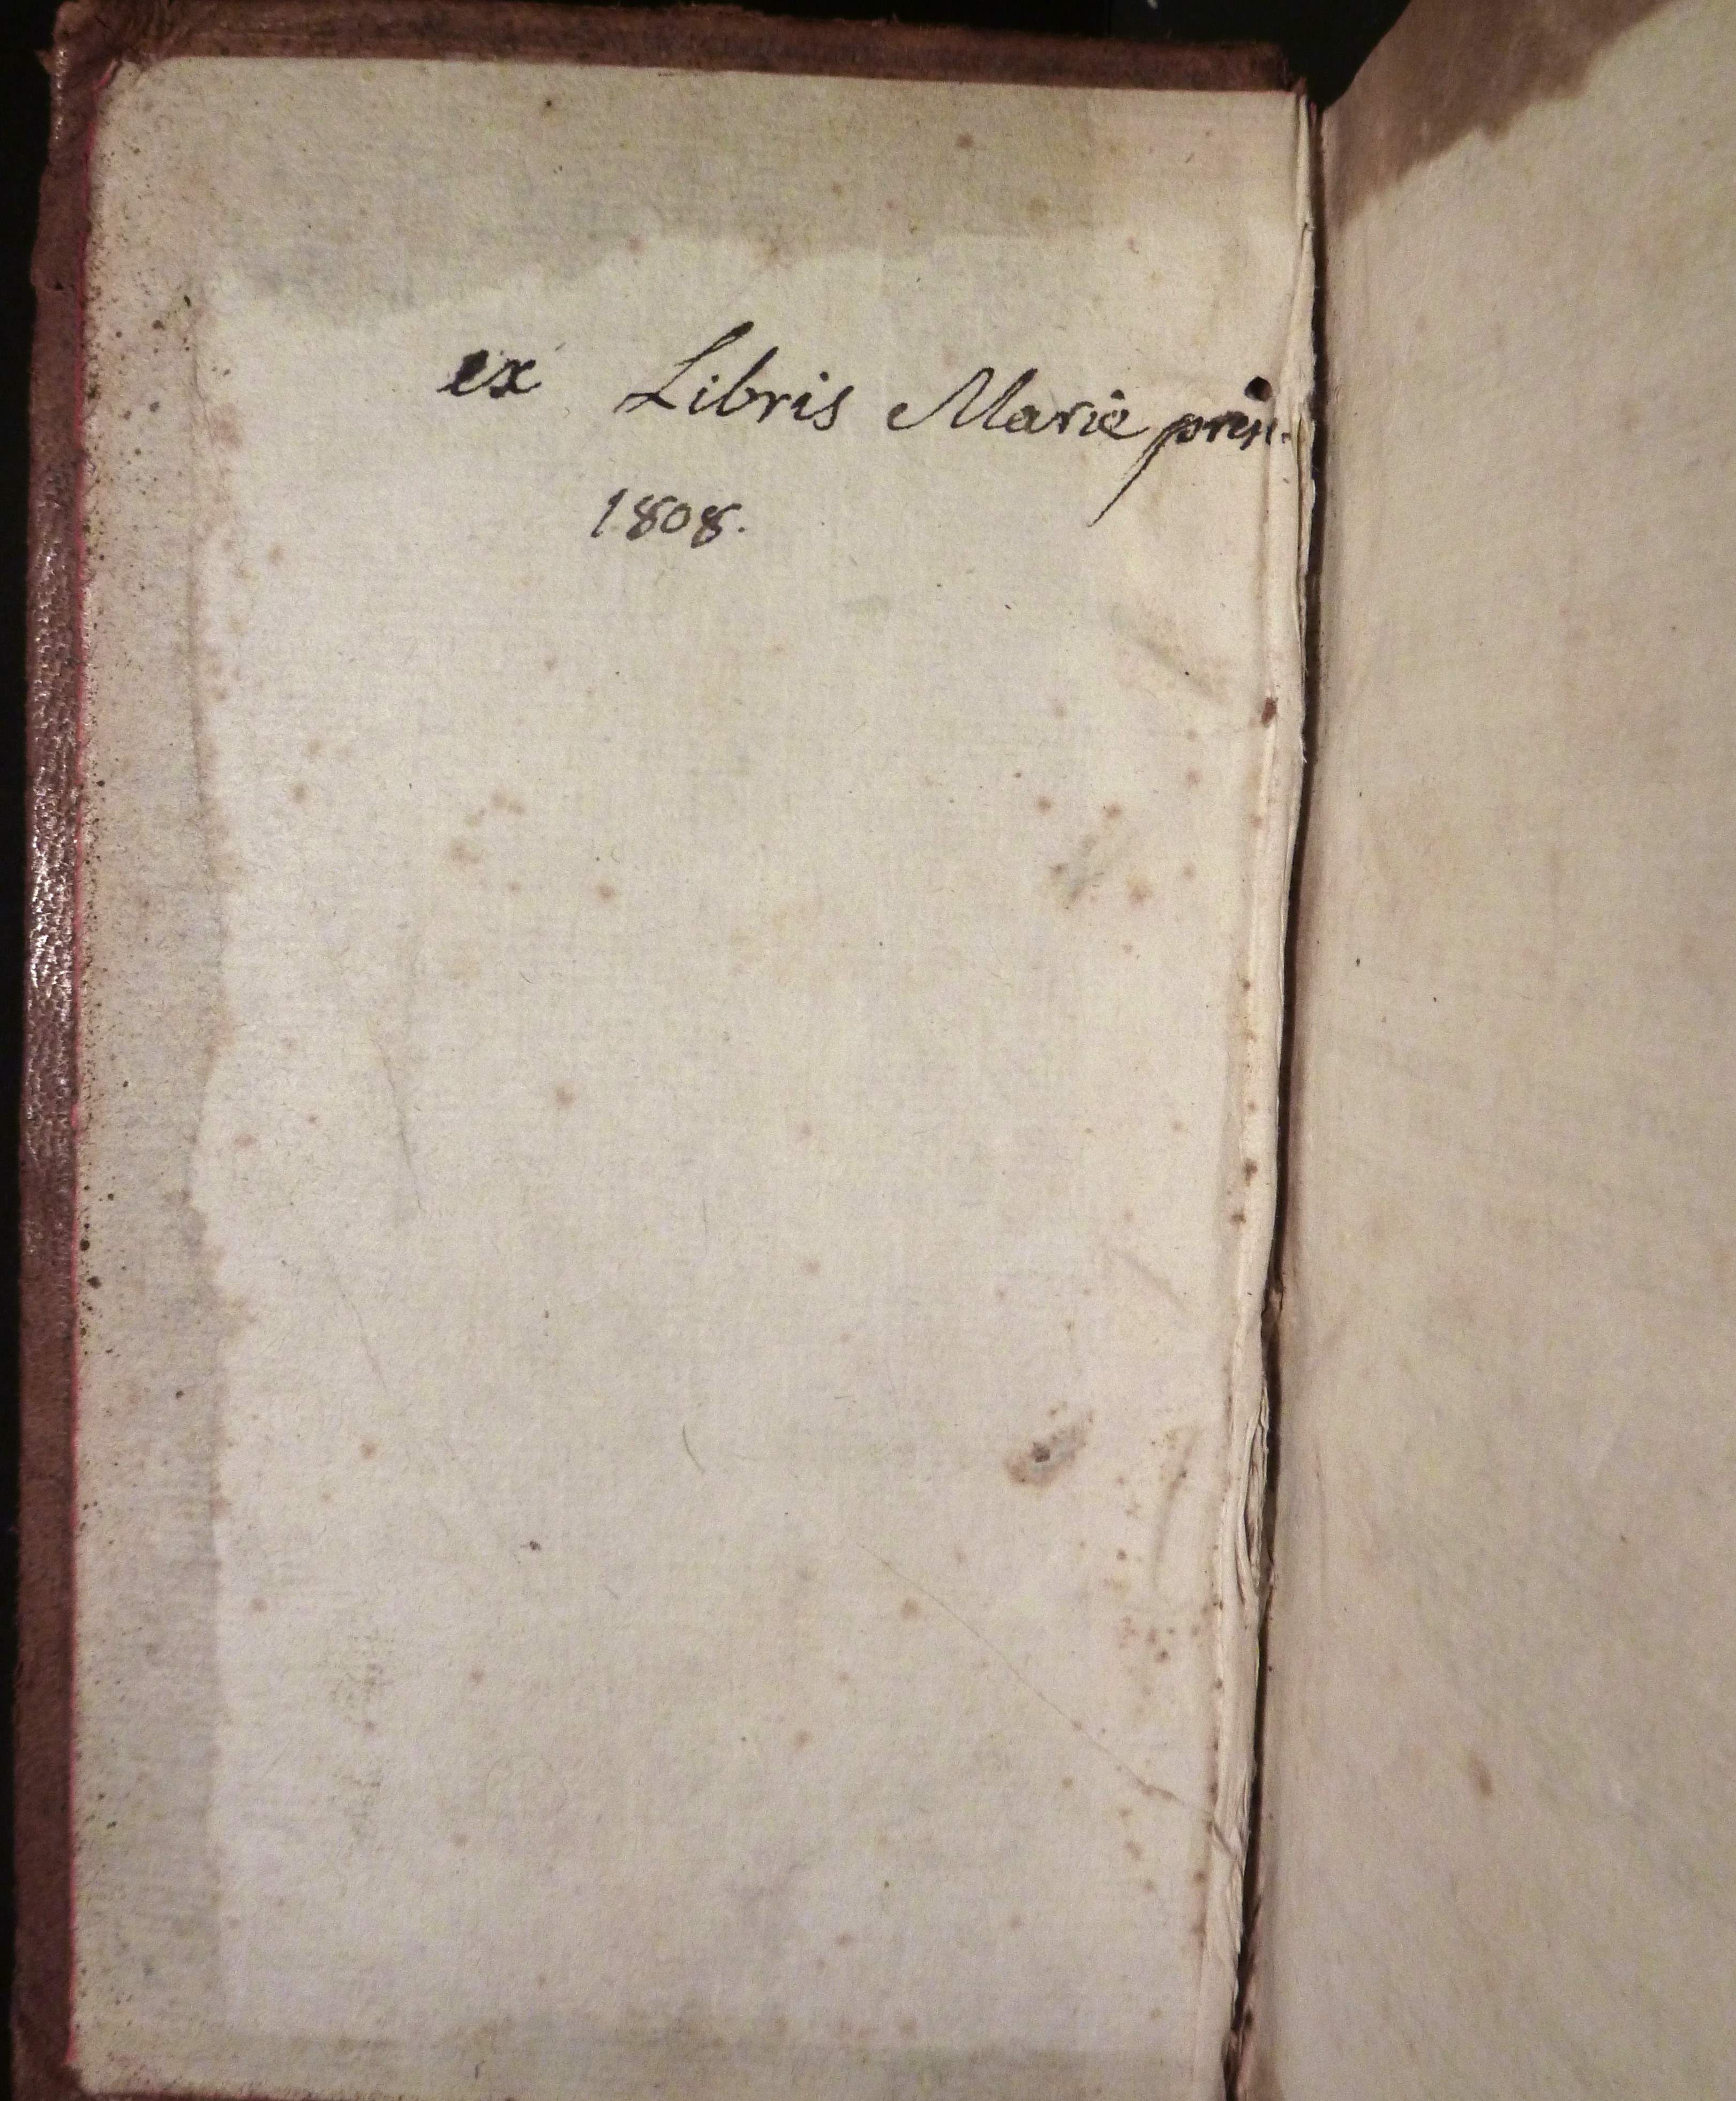 ex Libris Marie prin.
1808.